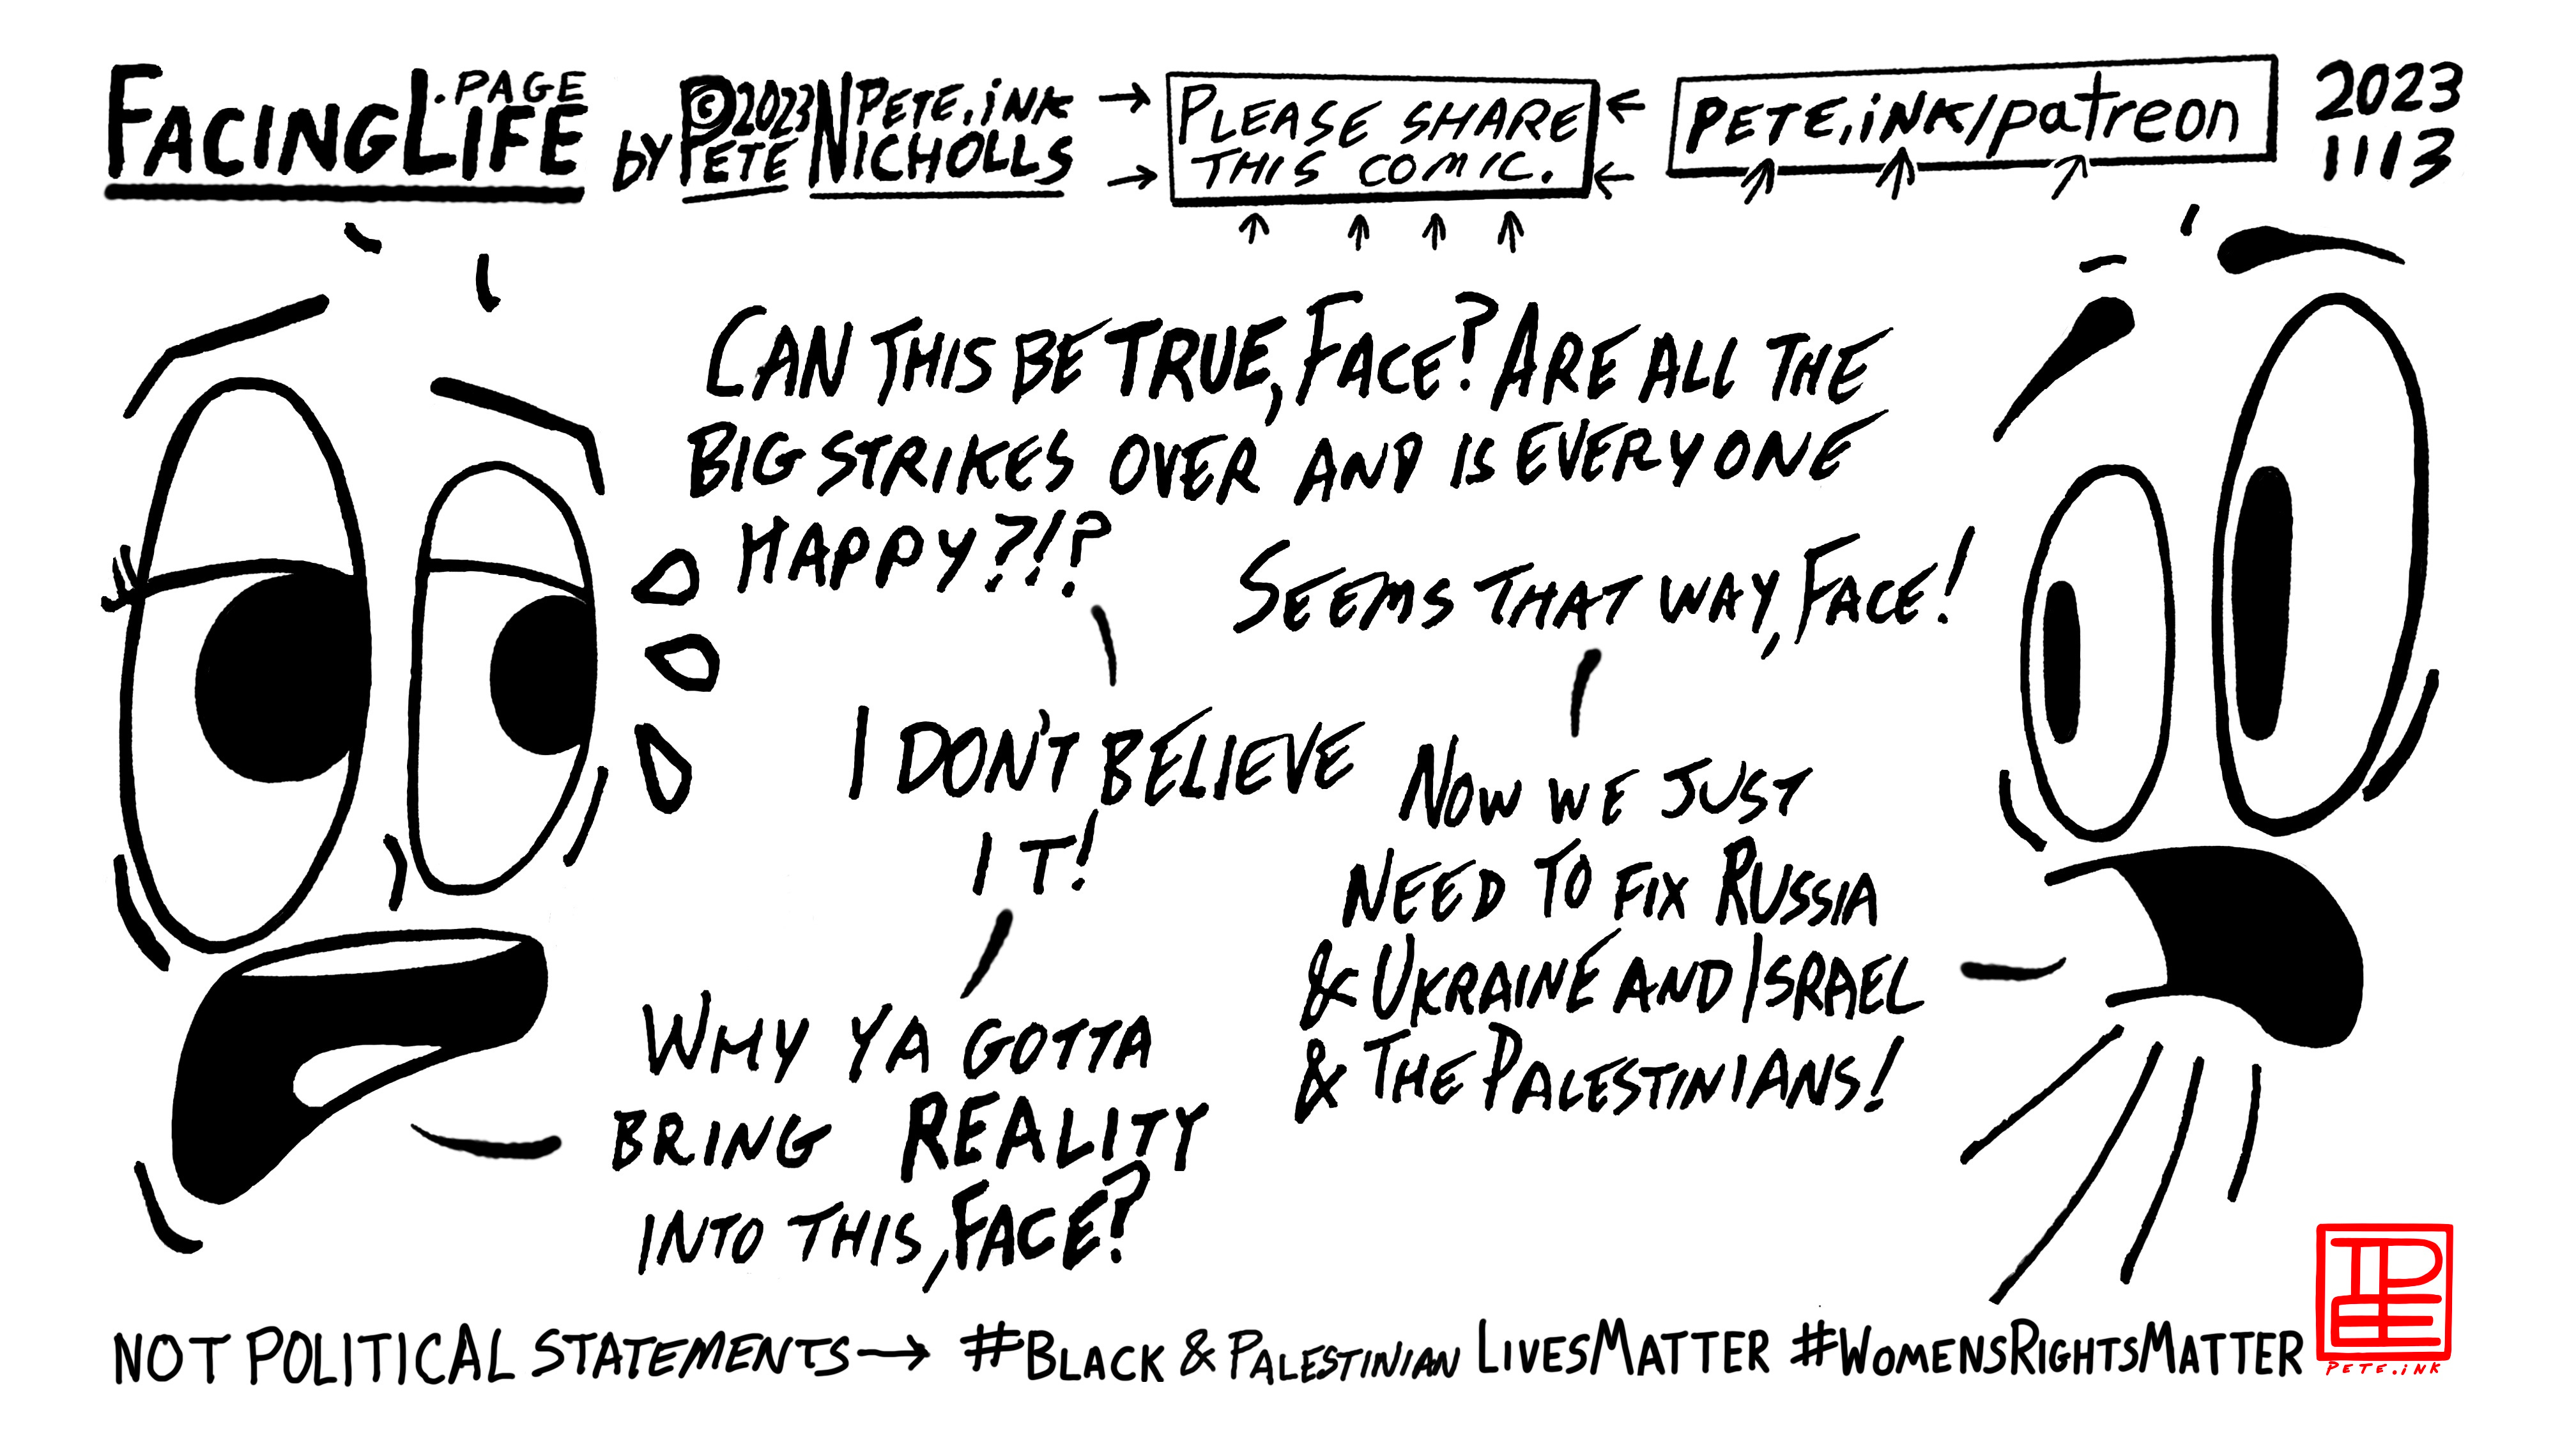 FACINGLIFE.PAGE
by ©2023 PETE NICHOLLS PETE.iNK
→ PLEASE SHARE ←
→ THIS COMIC. ←
PETE.iNK/patreon
2023
1113
CAN THIS BE TRUE, FACE? ARE ALL THE
BIG STRIKES OVER AND IS EVERYONE
HAPPY?!?
SEEMS THAT WAY, FACE!
I DON'T BELIEVE
IT!
NOW WE JUST
NEED TO FIX RUSSIA
& UKRAINE AND ISRAEL
& THE PALESTINIANS!
WHY YA GOTTA
BRING REALITY
INTO THIS, FACE?
NOT POLITICAL STATEMENTS → #BLACK & PALESTINIAN LIVESMATTER #WOMENSRIGHTSMATTER
PETE.iNK